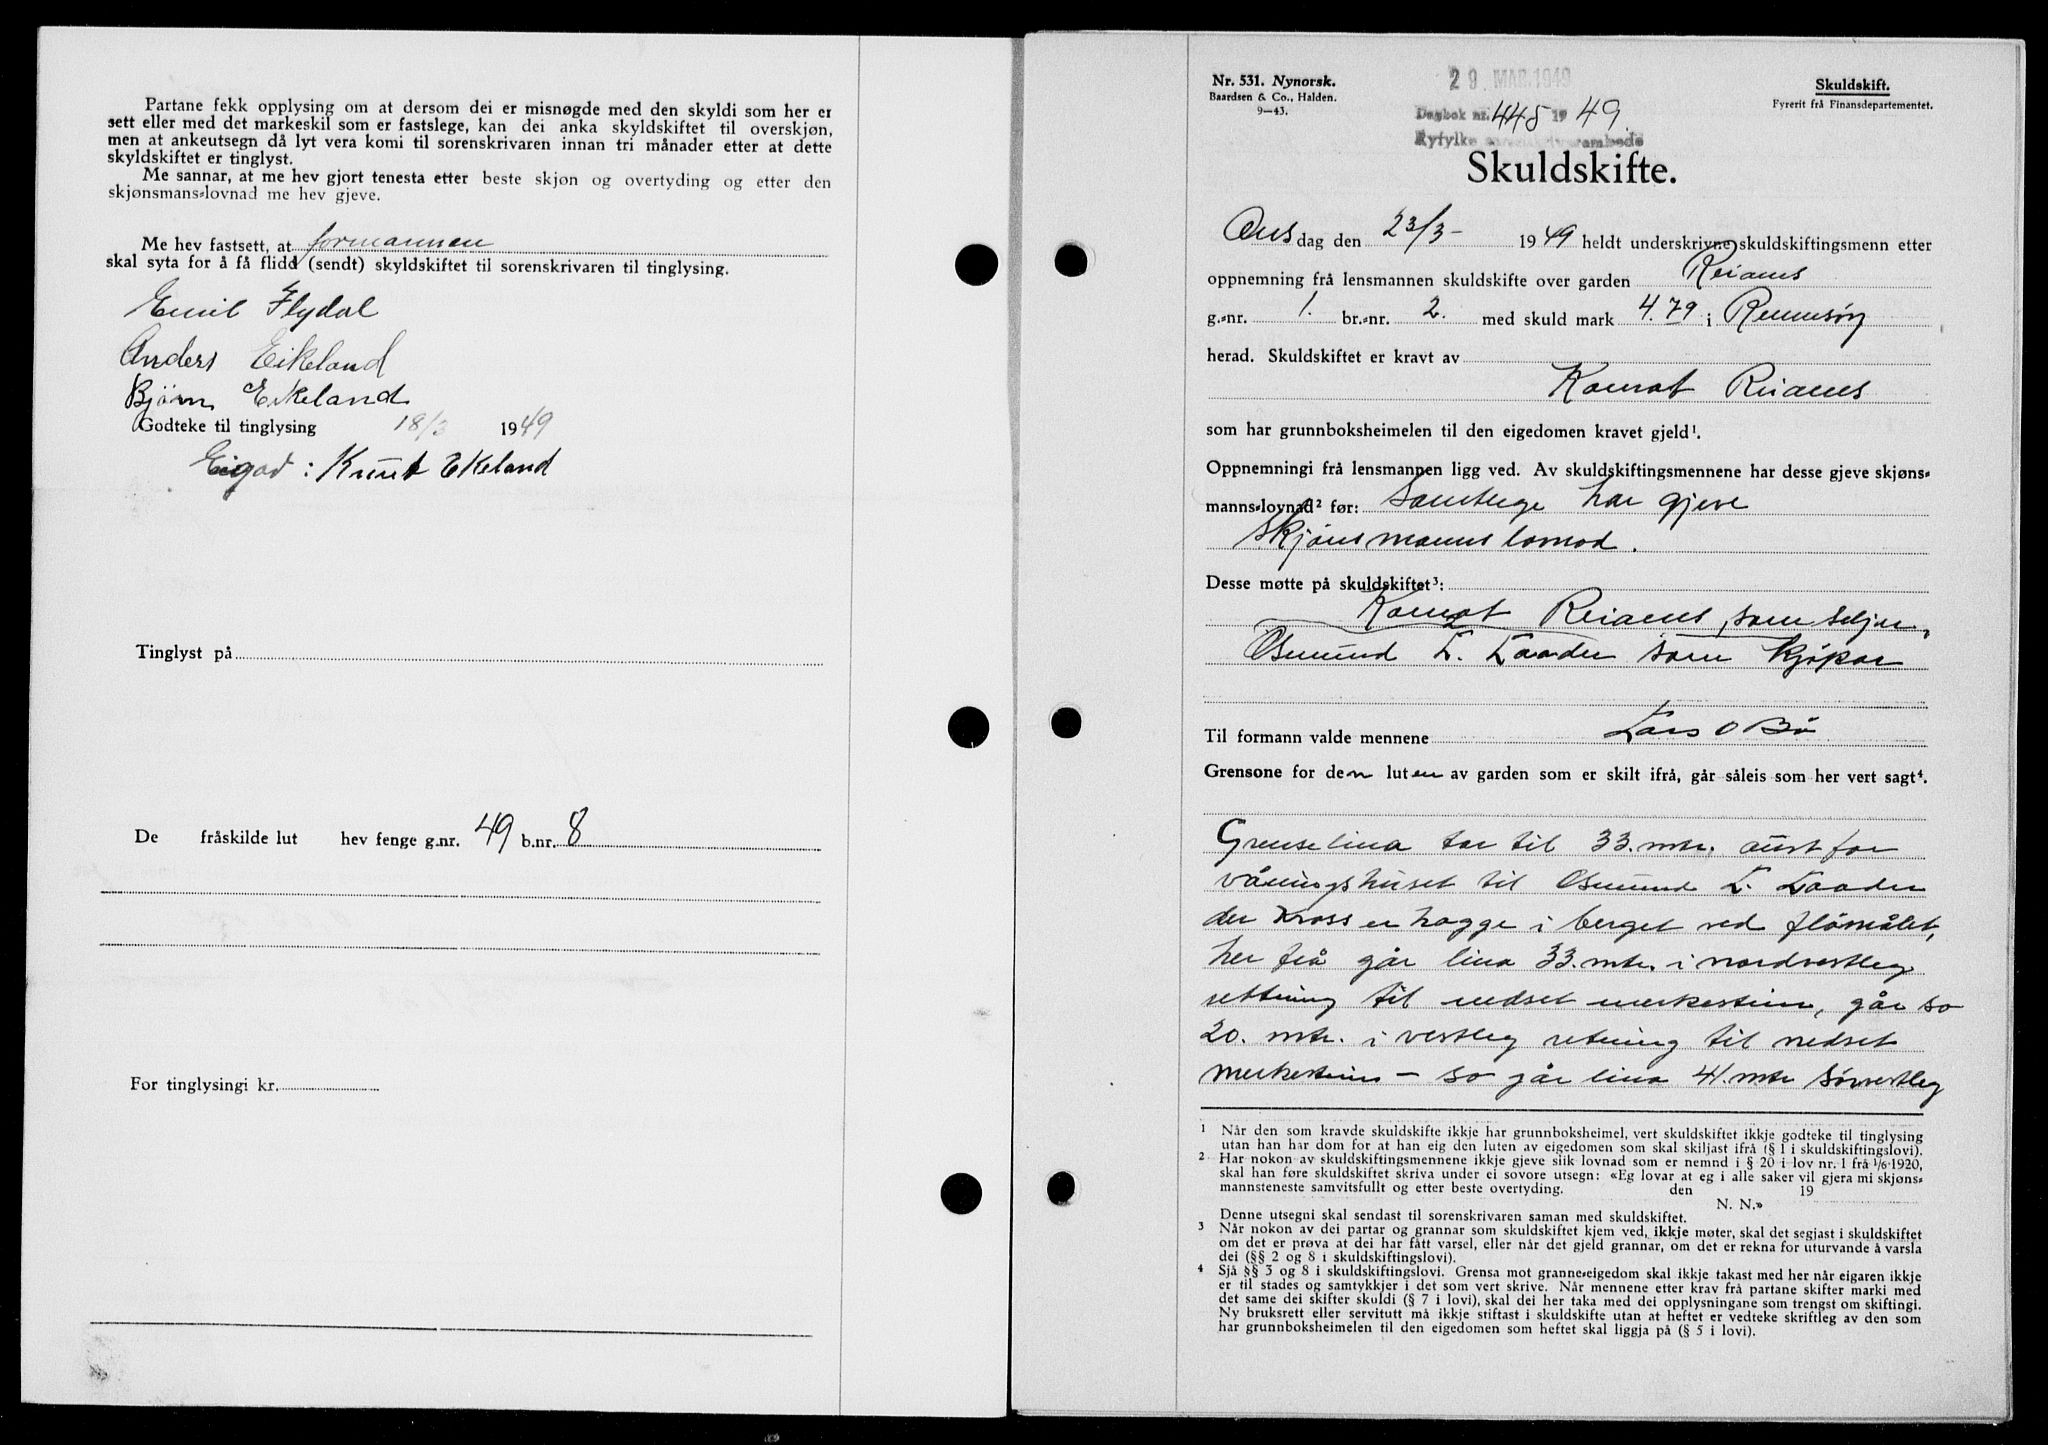 Partane fekk opplysing om at dersom dei er misnøgde med den skyldi som her er
sett eller med det markeskil som er fastslege, kan dei anka skyldskiftet til overskjøn,
men at ankeutsegn då lyt vera komi til sorenskrivaren innan tri månader etter at dette
skyldskiftet er tinglyst.
Me sannar, at me hev gjort tenesta etter beste skjøn og overtyding og etter den
skjønsmans-lovnad me hev gjeve.
Me hev fastsett, at formannen
skal syta for å få flidd (sendt) skyldskiftet til sorenskrivaren til tinglysing.
Emil Flydal
Anders Eikeland
Bjørn Eikeland
Godteke til tinglysing 18/3 1949
Eigar: Knut Ekeland
Tinglyst på
De fråskilde lut hev fenge g.nr. 49 b.nr. 8
For tinglysingi kr.
Nr. 531. Nynorsk.
Baardsen & Co., Halden.
9—43.
29 MAR. 1949
Dagbok nr. 445 1949.
Ryfylke sorenskrivarembede
Skuldskift.
Fyrerit frå Finansdepartementet.
Skuldskifte.
Onsdag den 23/3- 1949 heldt underskrivne skuldskiftingsmenn etter
oppnemning frå lensmannen skuldskifte over garden Reianes
g.-nr. 1. br.-nr. 2. med skuld mark 4.79 i Rennesøy
herad. Skuldskiftet er kravt av
Konrat Reianes
som har grunnboksheimelen til den eigedomen kravet gjeld¹.
Oppnemningi frå lensmannen ligg ved. Av skuldskiftingsmennene har desse gjeve skjøns-
manns-lovnad² før: Samtlege har gjeve
skjønsmanns lovnad.
Desse møtte på skuldskiftet³:
Konrat Reianes, som seljar,
Osmund L. Laader som kjøpar
Til formann valde mennene Lars O Bø
Grensone for den luten av garden som er skilt ifrå, går såleis som her vert sagt⁴.
Grenselina tar til 33. mtr. aust for
våningshuset til Osmund L. Laader
der kross er hogge i berget ved flomålet,
her frå går lina 33. mtr. i nordvestleg
rettning til nedset merkestein, går so
20. mtr. i vestleg retning til nedset
merkestein – so går lina 41. mtr sørvestleg
¹ Når den som kravde skuldskifte ikkje har grunnboksheimel, vert skuldskiftet ikkje godteke til tinglysing
utan han har dom for at han eig den luten av eigedomen som skal skiljast ifrå (§ 1 i skuldskiftingslovi).
² Har nokon av skuldskiftingsmennene ikkje gjeve slik lovnad som er nemnd i § 20 i lov nr. 1 frå 1/6-1920,
skal han føre skuldskiftet skriva under ei sovore utsegn: «Eg lovar at eg i alle saker vil gjera mi skjøns-
mannsteneste samvitsfullt og etter beste overtyding. den 19
N. N.»
Denne utsegni skal sendast til sorenskrivaren saman med skuldskiftet.
³ Når nokon av dei partar og grannar som skuldskiftet kjem ved, ikkje møter, skal det segjast i skuldskiftet
om det er prøva at dei har fått varsel, eller når det gjeld grannar, om det er rekna for uturvande å varsla
dei (§§ 2 og 8 i skuldskiftingslovi).
⁴ Sjå §§ 3 og 8 i skuldskiftingslovi. Grensa mot granne-eigedom skal ikkje takast med her når eigaren ikkje
er til stades og samtykkjer i det som vert skrive. Når mennene etter krav frå partane skifter marki med
det same dei skifter skuldi (§ 7 i lovi), skal dei her taka med dei opplysningane som trengst om skiftingi.
Ny bruksrett eller servitutt må ikkje stiftast i skuldskifte utan at heftet er vedteke skriftleg av den som
har grunnboksheimelen til den eigedomen som heftet skal liggja på (§ 5 i lovi).